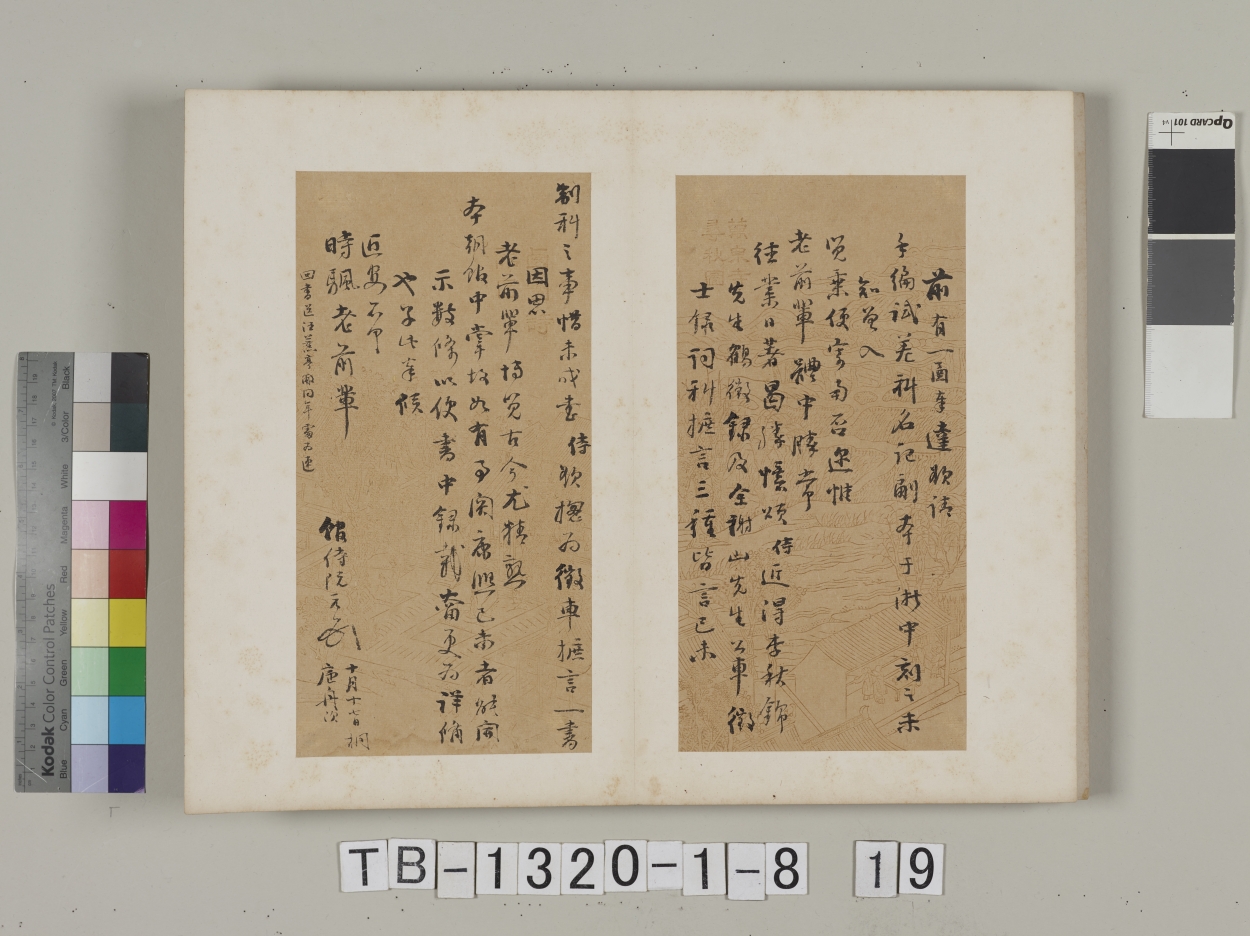 前有一函奉達欲請
手編試差科名記副本于浙中刻之未
知曾入
覽乘便寄南否迩惟
老前輩體中勝常
往業日著曷勝懷頌侍近得李秋錦
先生鶴徵錄及全謝山先生公車徵
士錄詞科摭言三種皆言己未
制科之事惜未成書侍欲摠爲徵車摭言一書
因思
老前輩博覽古今尤精熟
本朝館中掌故如有事関康熙己未者祈開
示數條以便書中錄載 更爲詳備
也子此奉候
近安不一
時驅老前輩
館侍阮元
十月十七日桐
廬舟次
回書送汪 同年處爲速
萬泉寺
尋秋圖
TB-1320-1-8 19
QPCARD 101 v4
Kodak Color Control Patches
© Kodak, 2007 TM: Kodak
Black
3/Color
White
Magenta
Red
Yellow
Green
Cyan
Blue